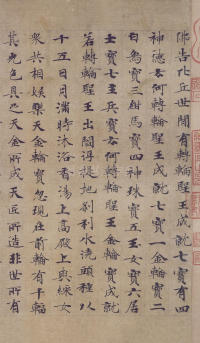 佛告比丘世間有轉輪聖王成就七寶有四
神德云何轉輪聖王成就七寶一金輪寶二
白象寶三紺馬寶四神珠寶五玉女寶六居
士寶七主兵寶云何轉輪聖王金輪寶成就
若轉輪聖王出閻浮提地剎利水澆頭種以
十五日月滿時沐浴香湯上高殿上與婇女
眾共相娛樂天金輪寶忽現在前輪有千輻
其光色具足天金所成天匠所造非世所有